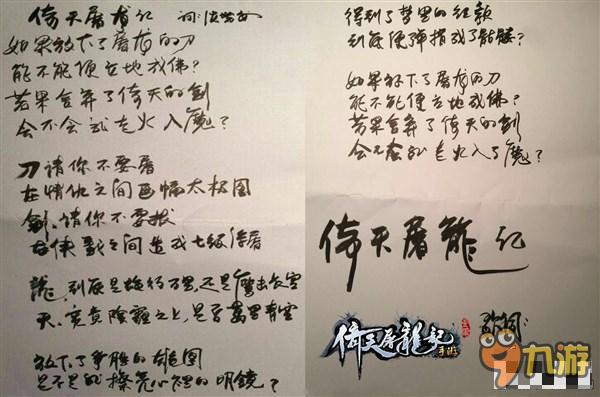 倚天屠龙记
词:沈
如果放下了屠龙的刀
能不能便立地成佛?
若果舍弃了倚天的剑
会不会就走火入魔?
刀 请你不要屠
在情仇之间画幅太极图
剑、请你不要拔
在侠影之间造成七级浮屠
龙,到底是 万里,还是 击长空
天,究竟阴霾之上,是否万里青空
放下了争胜的雄图
是不是就擦亮心里的明镜?
得到了梦里的红颜
到底便弹指成了骷髅?
如果放下了屠龙的刀
能不能便立地成佛?
若果舍弃了倚天的剑
会不会就走火入了魔?
倚天屠龍记
倚天屠龍記
手游
九游